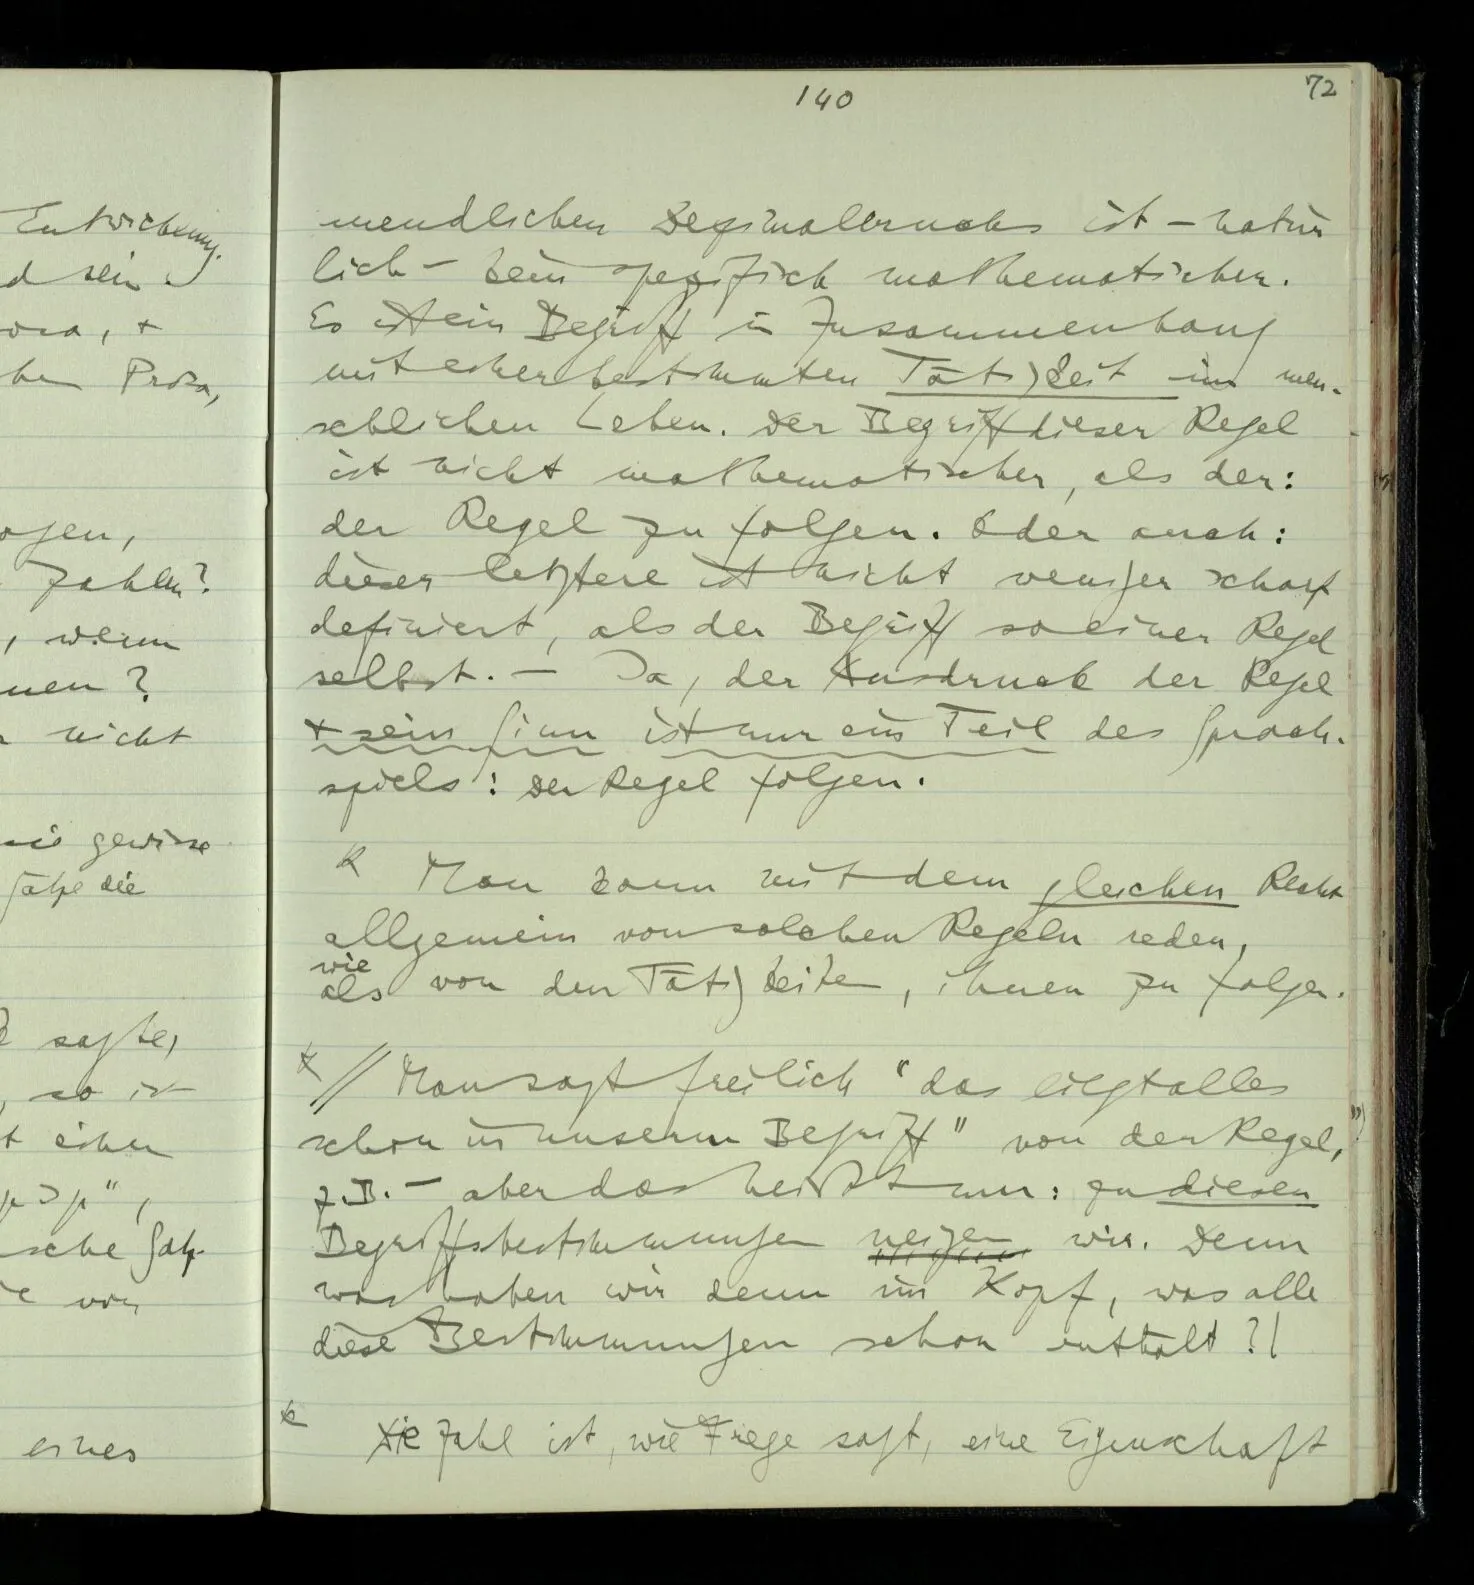 Entwicklung.
d sein
Prosa,
ogen,
Zahlen?
, wenn
nen?
nicht
sie gewisse
Sätze die
sagte,
, so ist
t einen
p⊃p",
sche Sätz-
von
eines
140
72
unendlichen Dezimalbruchs ist – natür
lich – kein spezifisch mathematischer.
Es ist ein Begriff in Zusammenhang
mit einer bestimmten Tät)keit im men-
schlichen Leben. Der Begriff dieser Regel
ist nicht mathematischer, als der:
der Regel zu folgen. Oder auch:
dieser letztere ist nicht weniger scharf
definiert, als der Begriff so einer Regel
selbst. – Ja, der Ausdruck der Regel
+ sein Sinn ist nur ein Teil des Sprach-
spiels: der Regel folgen.
Man kann mit dem gleichen Recht
allgemein von solchen Regeln reden,
wie
als von den Tät)keiten, ihnen zu folgen.
// Man sagt freilich "das liegt alles
schon in unserem Begriff" von der Regel,
z.B. – aber das heißt nun: zu diesen
Begriffsbestimmungen neigen wir. Denn
was haben wir denn im Kopf, was alle
diese Bestimmungen schon enthält?!
Die Zahl ist, wie Frege sagt, eine Eigenschaft